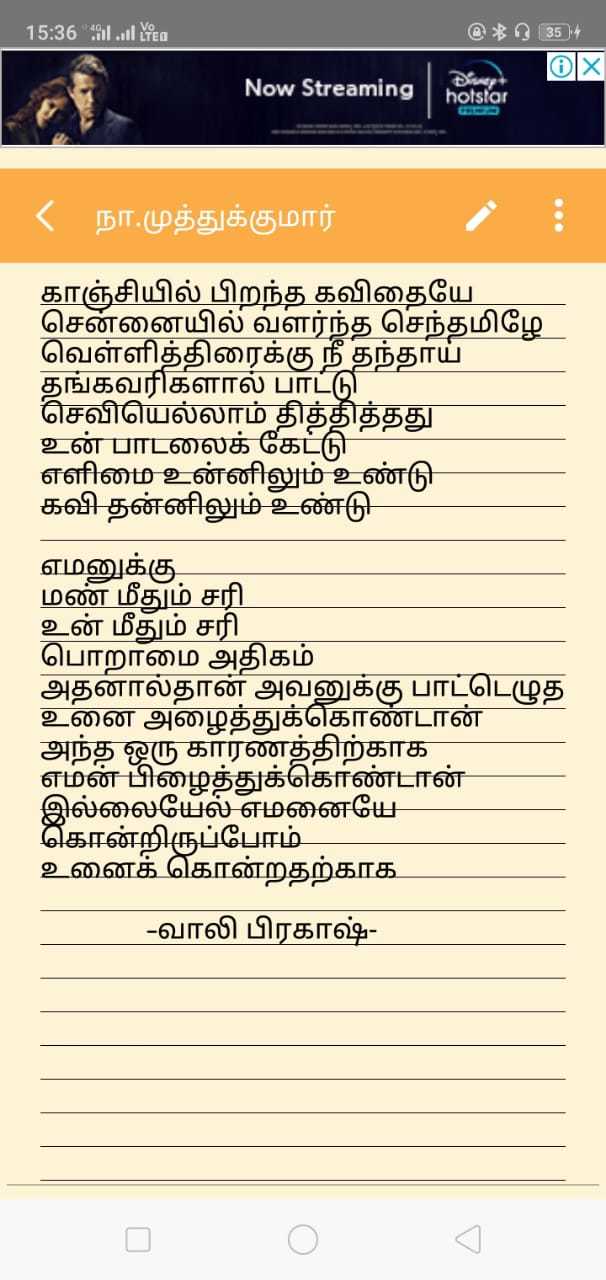 15:36
4G
Vo
LTE
35
Now Streaming
Disney+
hotstar
PREMIUM
நா.முத்துக்குமார்
காஞ்சியில் பிறந்த கவிதையே
சென்னையில் வளர்ந்த செந்தமிழே
வெள்ளித்திரைக்கு நீ தந்தாய்
தங்கவரிகளால் பாட்டு
செவியெல்லாம் தித்தித்தது
உன் பாடலைக் கேட்டு
எளிமை உன்னிலும் உண்டு
கவி தன்னிலும் உண்டு
எமனுக்கு
மண் மீதும் சரி
உன் மீதும் சரி
பொறாமை அதிகம்
அதனால்தான் அவனுக்கு பாட்டெழுத
உனை அழைத்துக்கொண்டான்
அந்த ஒரு காரணத்திற்காக
எமன் பிழைத்துக்கொண்டான்
இல்லையேல் எமனையே
கொன்றிருப்போம்
உனைக் கொன்றதற்காக
-வாலி பிரகாஷ்-